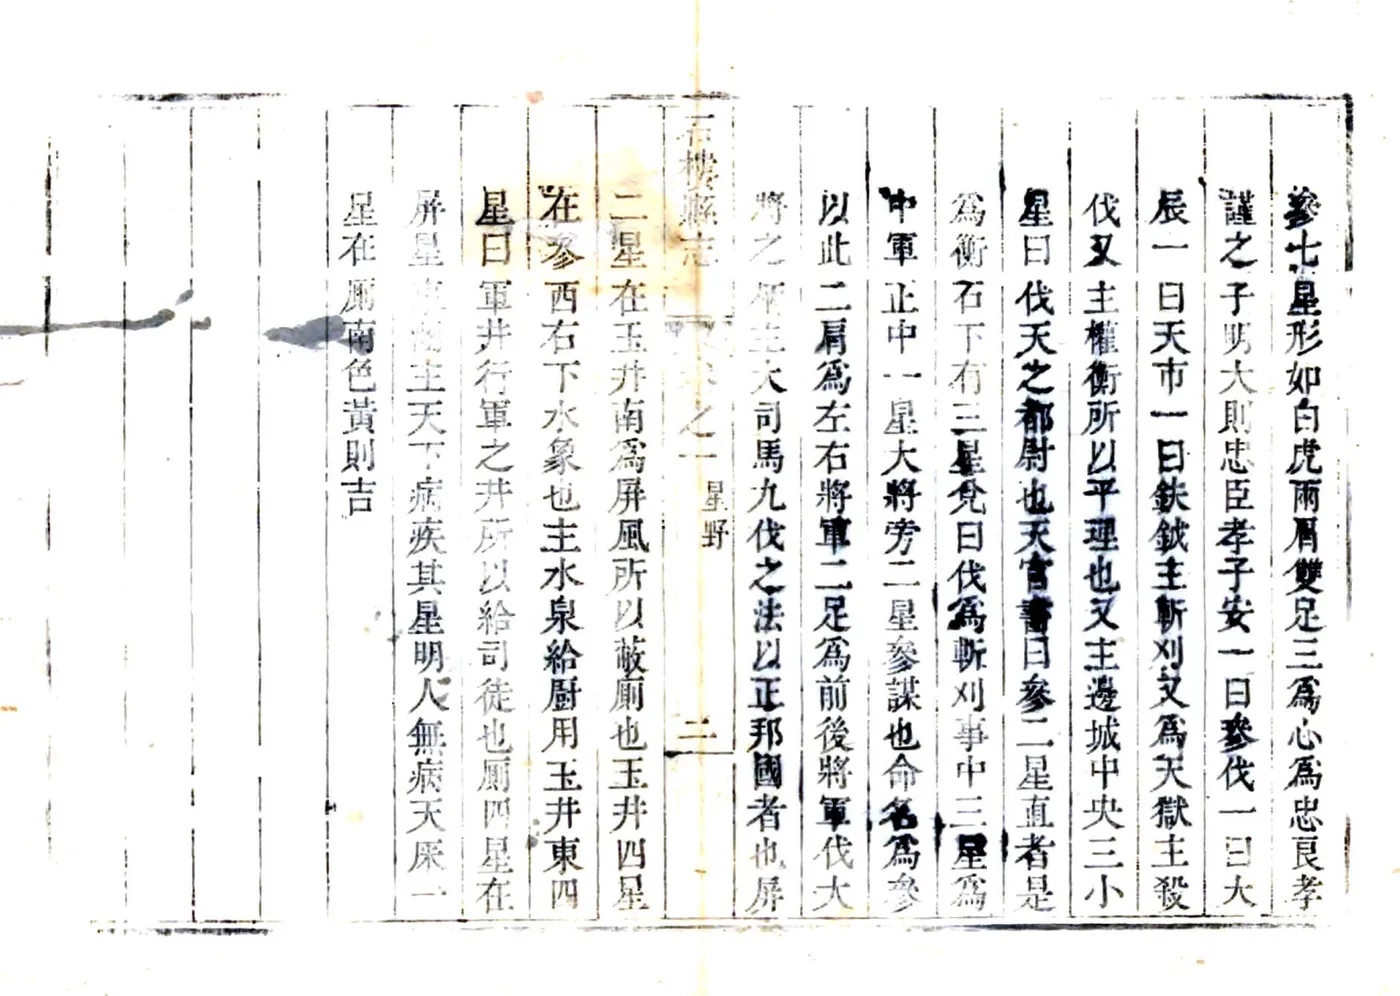 參七星形如白虎兩肩雙足三爲心爲忠良孝
謹之子明大則忠臣孝子安一曰參伐一曰大
辰一曰天市一曰鈇鉞主斬刈又爲天獄主殺
伐又主權衡所以平理也又主邊城中央三小
星曰伐天之都尉也天官書曰參二星直者是
爲衡石下有三星兊曰伐爲斬刈事中三星爲
中軍正中一星大將旁二星參謀也命名爲參
以此二肩爲左右將軍二足爲前後將軍伐大
將之 主大司馬九伐之法以正邦國者也屏
石樓縣志 卷之一 星野 二
二星在玉井南爲屏風所以蔽廁也玉井四星
在參西右下水象也主水泉給廚用玉井東四
星曰軍井行軍之井所以給司徒也廁四星在
屏星 主天下病疾其星明人無病天屎一
星在廁南色黃則吉